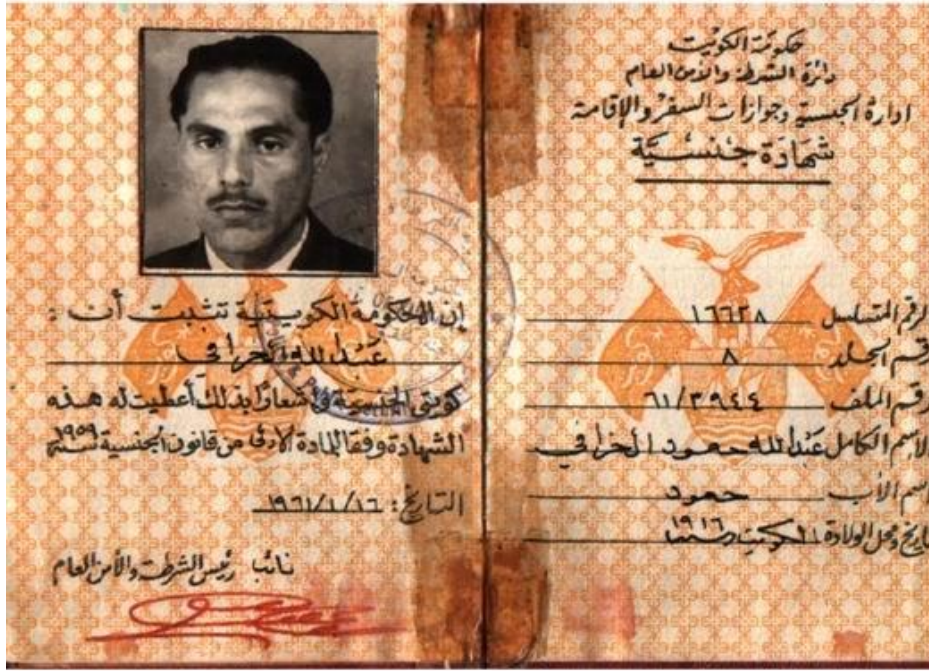 حكومة الكويت
دائرة الشرطة والأمن العام
ادارة الجنسية وجوازات السفر والإقامة
شهادة جنسية
الرقم المتسلسل ١٦٦٣٨
رقم المجلد ٨
رقم الملف ٦١/٣٩٤٤
الاسم الكامل عبدالله حمود الخرافي
اسم الأب حمود
تاريخ ومحل الولادة الكويت ١٩١٦
إن الحكومة الكويتية تثبت أن :
عبدالله الخرافي
كويتي الجنسية وإشعارًا بذلك أعطيت له هذه
الشهادة وفقا للمادة الاولى من قانون الجنسية سنة ١٩٥٩
التاريخ : ١٩٦١/١/١٦
نائب رئيس الشرطة والأمن العام